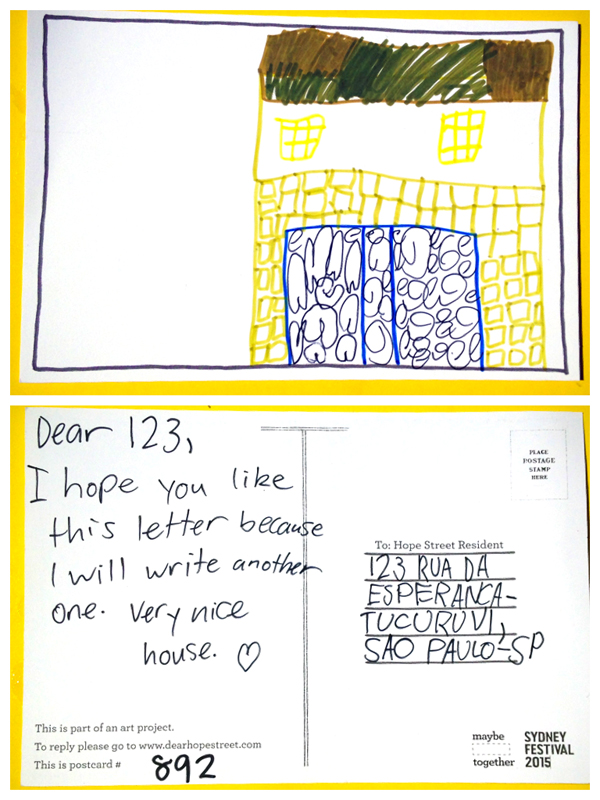 Dear 123,
I hope you like
this letter because
I will write another
one. Very nice
house. ♡
PLACE
POSTAGE
STAMP
HERE
To: Hope Street Resident
123 RUA DA
ESPERANCA-
TUCURUVI,
SAO PAULO-SP
This is part of an art project.
To reply please go to www.dearhopestreet.com
This is postcard # 892
maybe
together
SYDNEY
FESTIVAL
2015